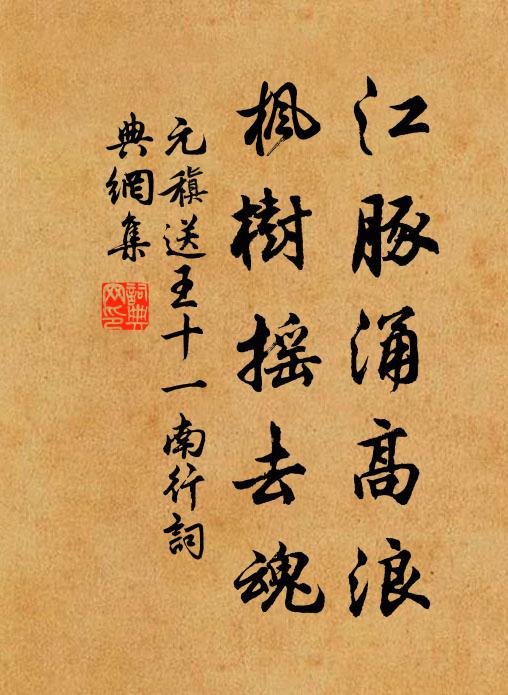 江豚涌高浪
枫樹摇去魂
元稹送王十一南行詞
典網集
詞典
网印